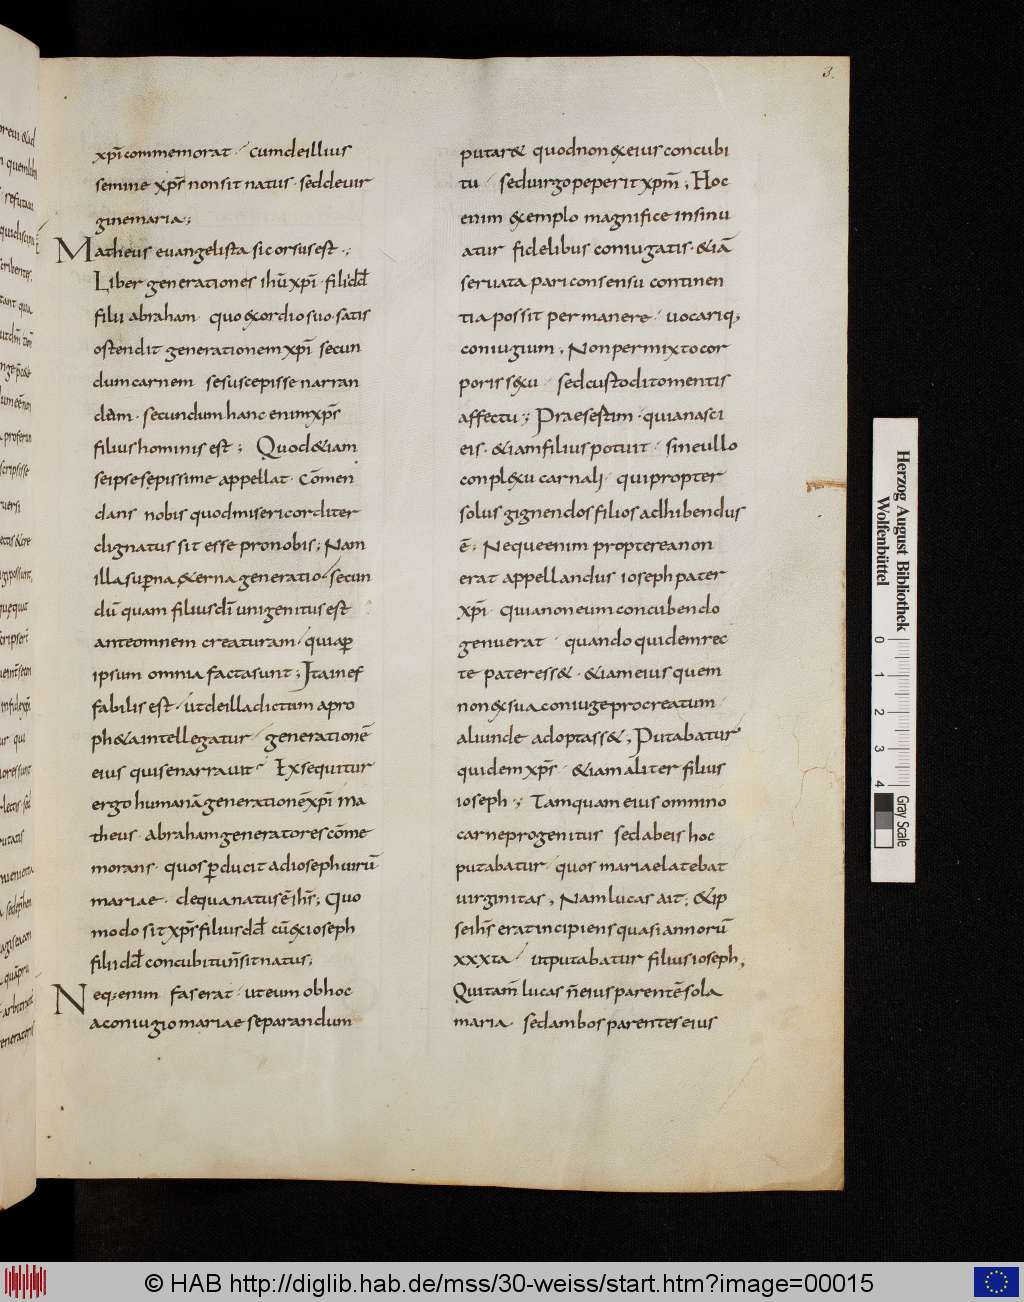 3.
xp̄i commemorat · cum de illius
semine xp̄s non sit natus · sed de uir
gine maria ;
Matheus euangelista sic orsus est ·;
Liber generationes ihū xp̄i · filii dd̄
filii abraham · quo exordio suo · satis
ostendit generationem xp̄i secun
dum carnem se suscepisse narran
dam · secundum hanc enim xp̄s
filius hominis est ; Quod &iam
se ipse sępissime appellat · Cōmen
dans nobis quod misericorditer
dignatus sit esse pro nobis ; Nam
illa superna & ęterna generatio secun
dū quam filius dī unigenitus est
ante omnem creaturam · qui a p̄
ipsum omnia facta sunt ; Ita inef
fabilis est · ut de illa dictum a pro
ph&a intellegatur · generationē
eius quis enarrauit · Exsequitur
ergo humanā generationē xp̄i ma
theus · abraham generatores cōme
morans · quos ꝑducit ad ioseph uirū
mariae · de qua natus ē ihs̄ ; Quo
modo sit xp̄s filius dd̄ cū ex ioseph
filii dd̄ concubitu n̄ sit natus ;
Neq; enim fas erat · ut eum ob hoc
a coniugio mariae separandum
putar& quod non ex eius concubi
tu · sed uirgo peperit xpm̄ ; Hoc
enim exemplo magnifice insinu
atur fidelibus coniugatis · &iā
seruata pari consensu continen
tia possit permanere · uocariq;
coniugium ; Non permixto cor
poris sexu · sed custodito mentis
affectu ; Praesertim · quia nasci
eis · &iam filius potuit · sine ullo
conplexu carnali · qui propter
solus gignendos filios adhibendus
ē ; Neque enim propterea non
erat appellandus ioseph pater
xp̄i · quia non eum concubendo
genuerat · quando quidem rec
te pater ess& · &iam eius quem
non ex sua coniuge procreatum ·
aliunde adoptass& ; Putabatur
quidem xp̄s · &iam aliter filius
ioseph ; Tamquam eius omnino
carne progenitus sed ab eis hoc
putabatur · quos mariae latebat
uirginitas ; Nam lucas ait ; & ip
se ihs̄ erat incipiens quasi annorū
xxxta · ut putabatur filius ioseph ;
Qui tam̄ lucas n̄ eius parentē sola
maria · sed ambos parentes eius
Herzog August Bibliothek
Wolfenbüttel
0 1 2 3 4
Gray Scale
© HAB http://diglib.hab.de/mss/30-weiss/start.htm?image=00015